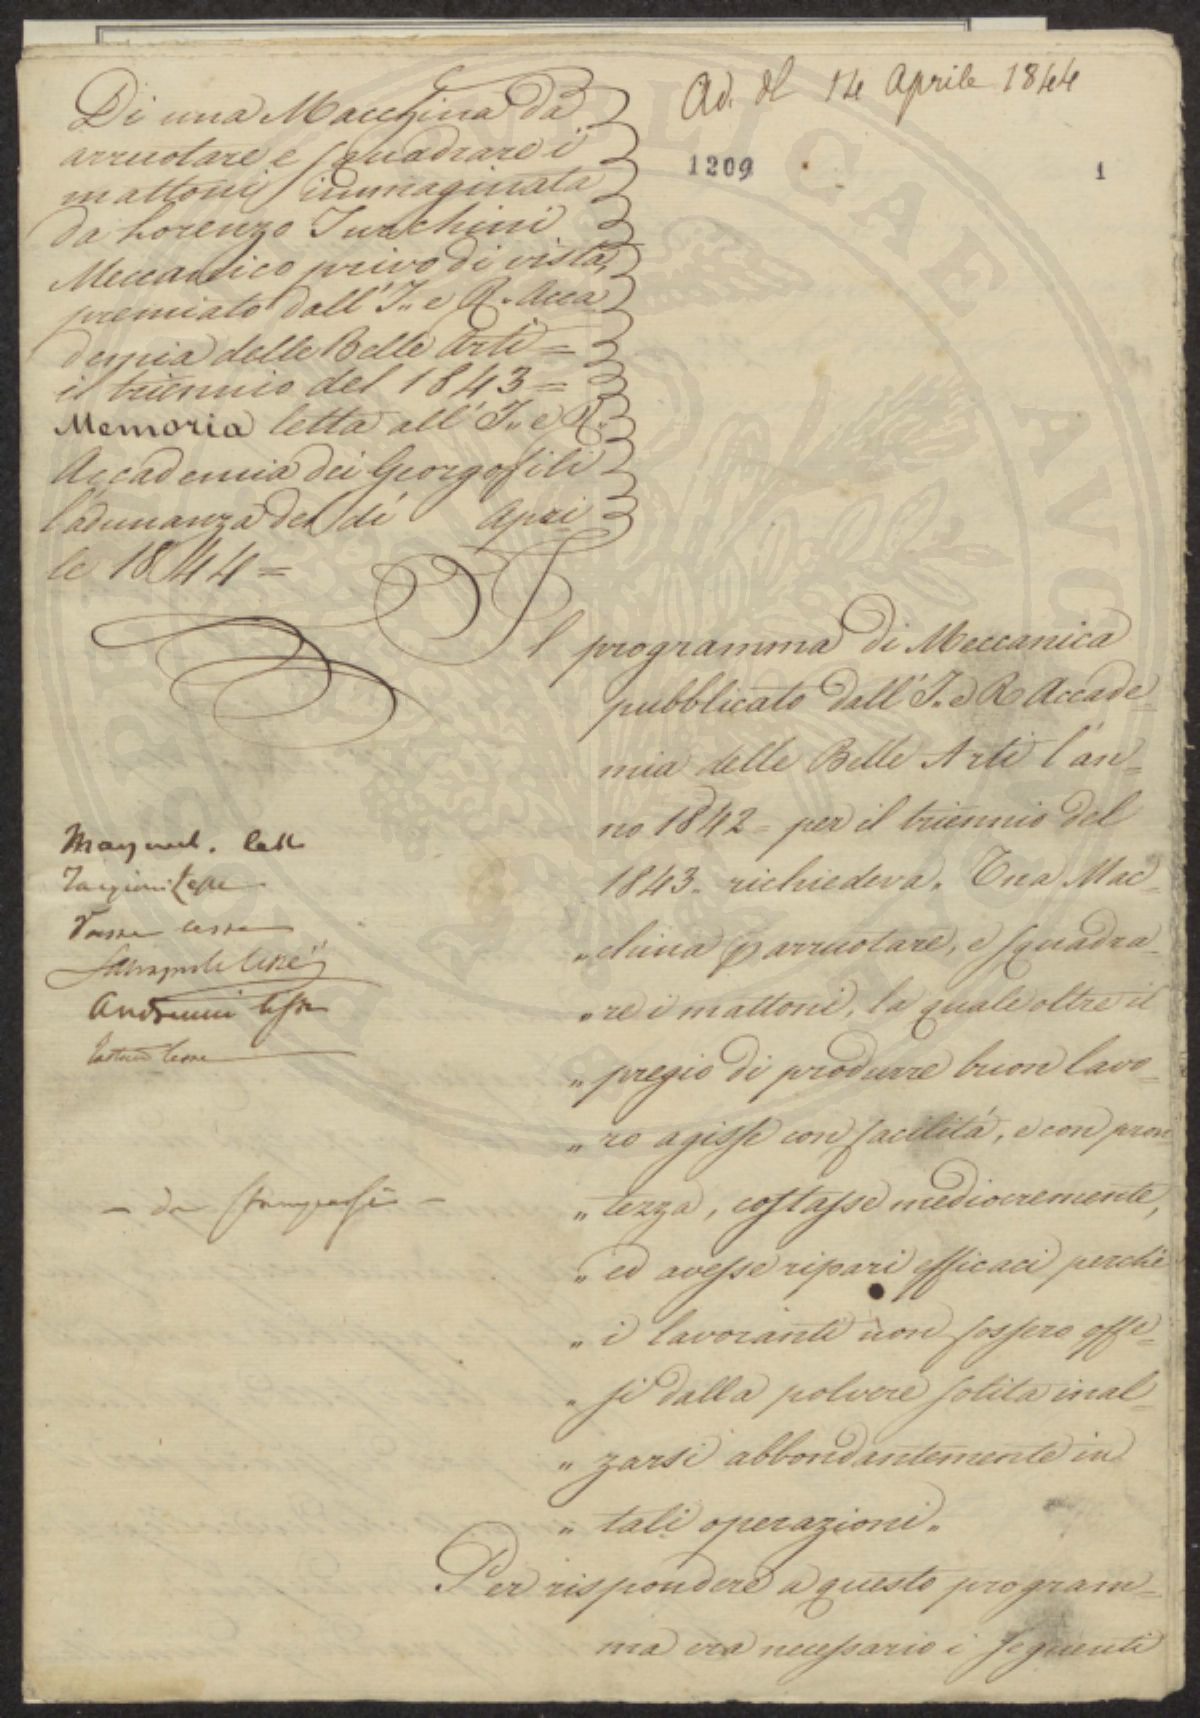 Ad. del 14 Aprile 1844
1209
1
Di una Macchina da
arruotare e squadrare i
mattoni immaginata
da Lorenzo Turchini
Meccanico privo di vista,
premiato dall' I. e R. Acca
demia delle Belle Arti =
il triennio del 1843 =
Memoria letta all' I. e R.
Accademia dei Georgofili
l'adunanza del dí Apri
le 1844 =
Il programma di Meccanica
pubblicato dall' I. e R. Accade-
mia delle Belle Arti l'an=
no 1842 = per il triennio del
1843. richiedeva. Una Mac=
„ china p arruotare, e squadra=
„ re i mattoni, la quale oltre il
„ pregio di produrre buon lavo=
„ ro agisse con facilitá, e con pron
„ tezza, costasse mediocremente,
„ ed avesse ripari efficaci perchè
„ i lavoranti non fossero offe=
„ si dalla polvere solita inal
„ zarsi abbondantemente in
„ tali operazioni„
Per rispondere a questo program=
ma era necessario i seguenti
Targioni
- da stamparsi -